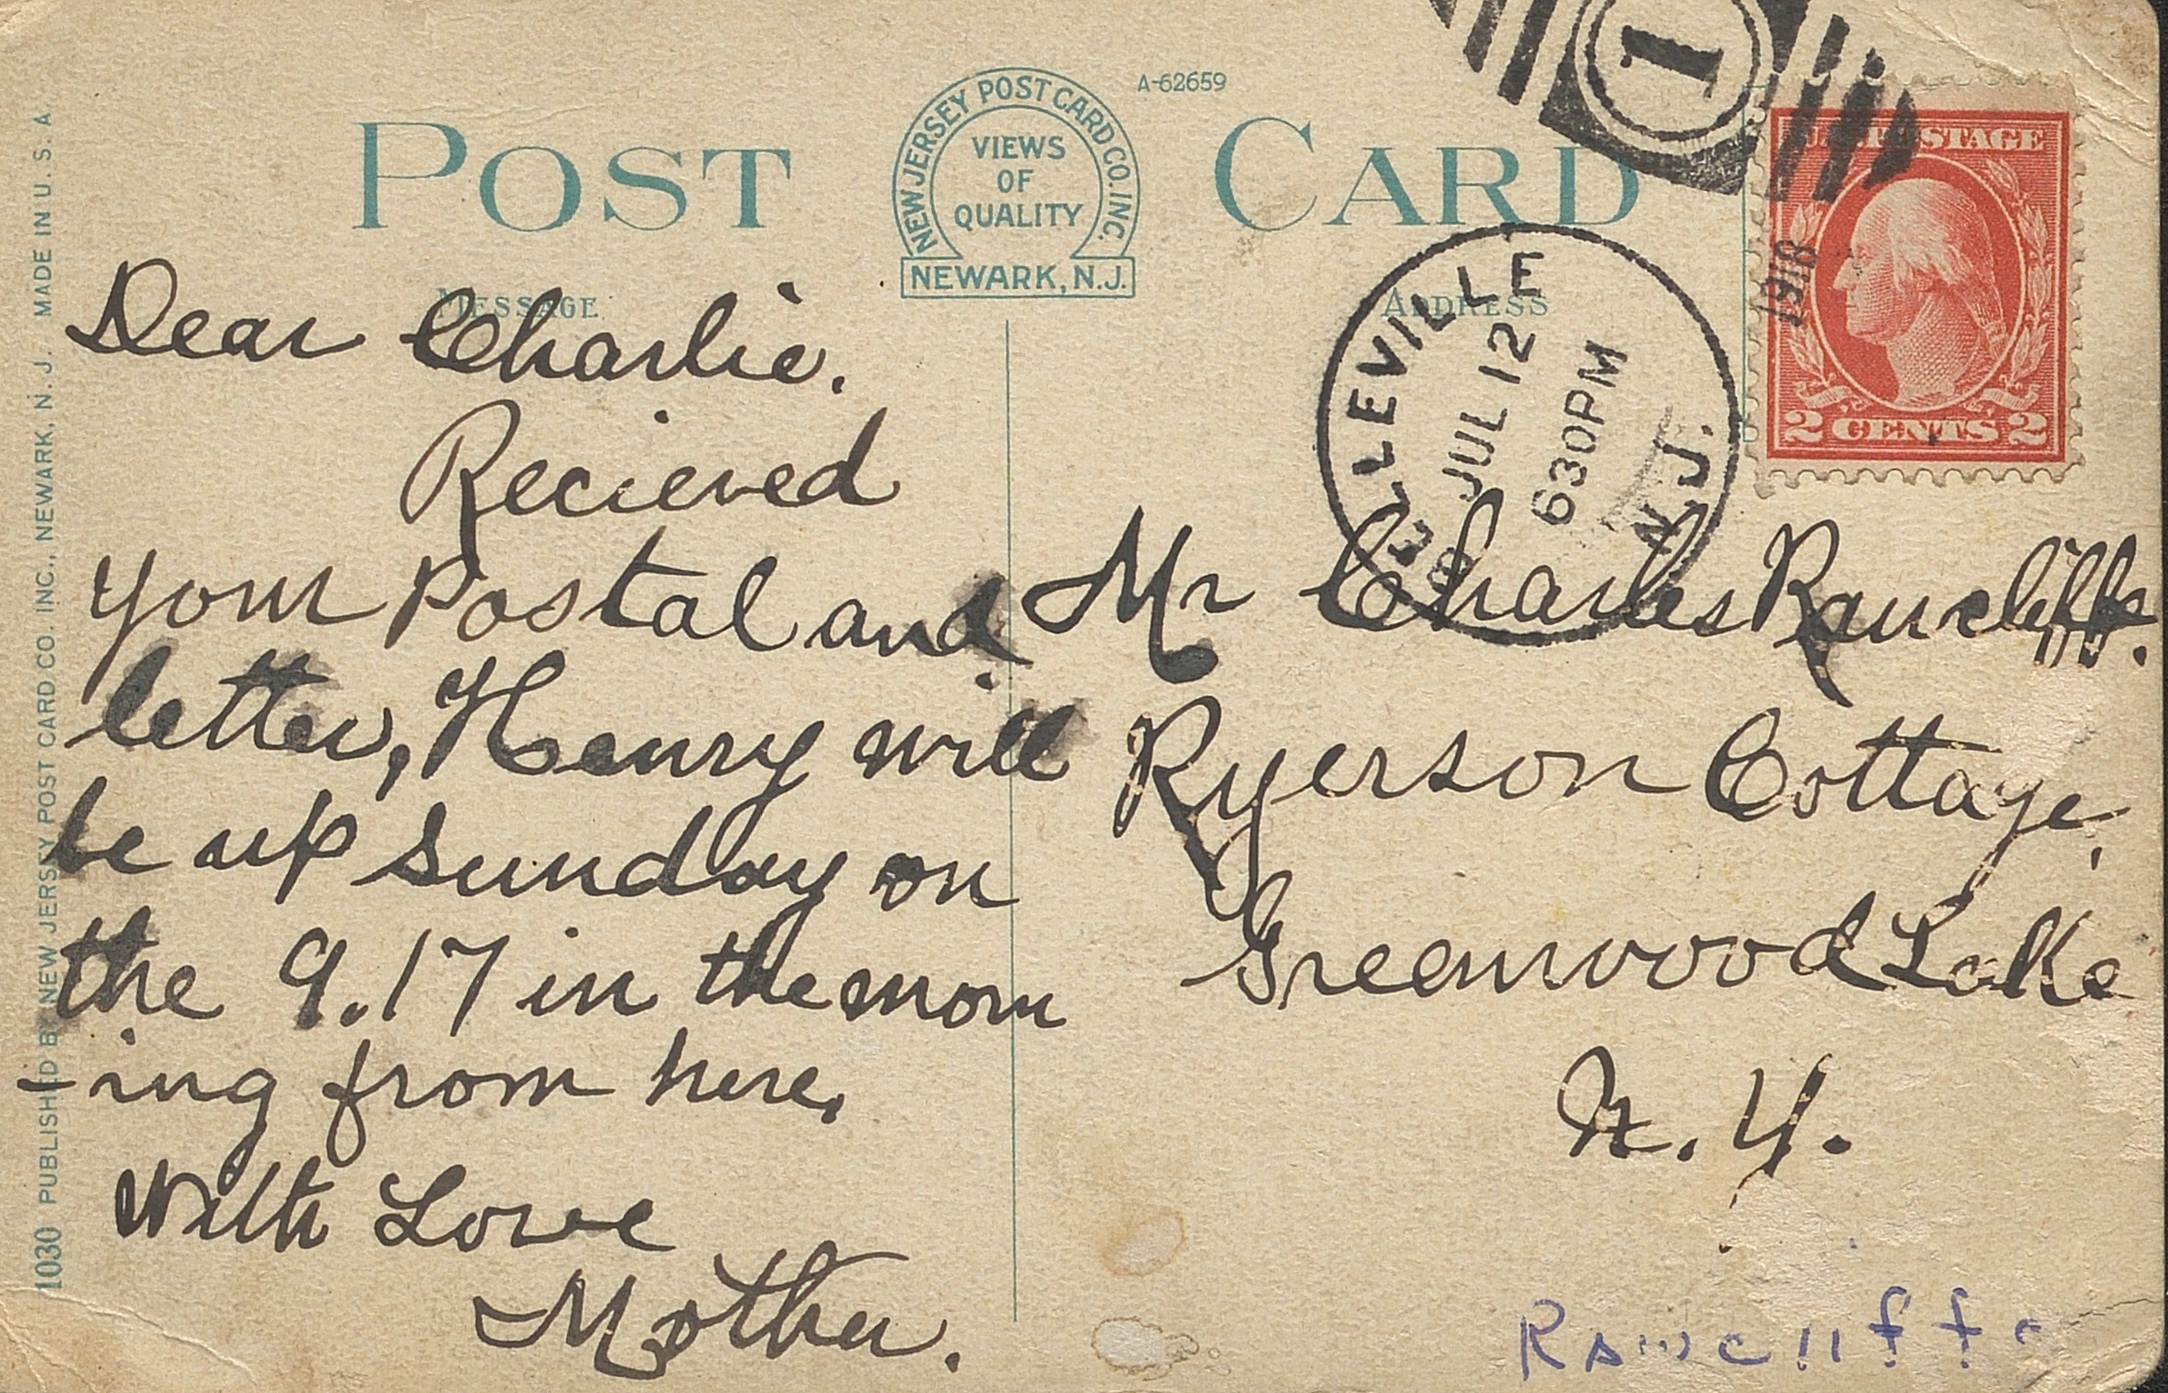 POST CARD
A-62659
NEW JERSEY POST CARD CO. INC.
VIEWS
OF
QUALITY
NEWARK, N.J.
MESSAGE
ADDRESS
1
U.S. POSTAGE
2 CENTS 2
BELLEVILLE
JUL 12
630PM
1918
N.J.
Dear Charlie.
Recieved
your Postal and
letter, Henry will
be up Sunday on
the 9.17 in the morn
-ing from here.
With Love
Mother.
Mr Charles Rawcliffe.
Ryerson Cottage,
Greenwood Lake
N.Y.
Rawcliffe
1030 PUBLISHED BY NEW JERSEY POST CARD CO. INC., NEWARK, N. J. MADE IN U. S. A